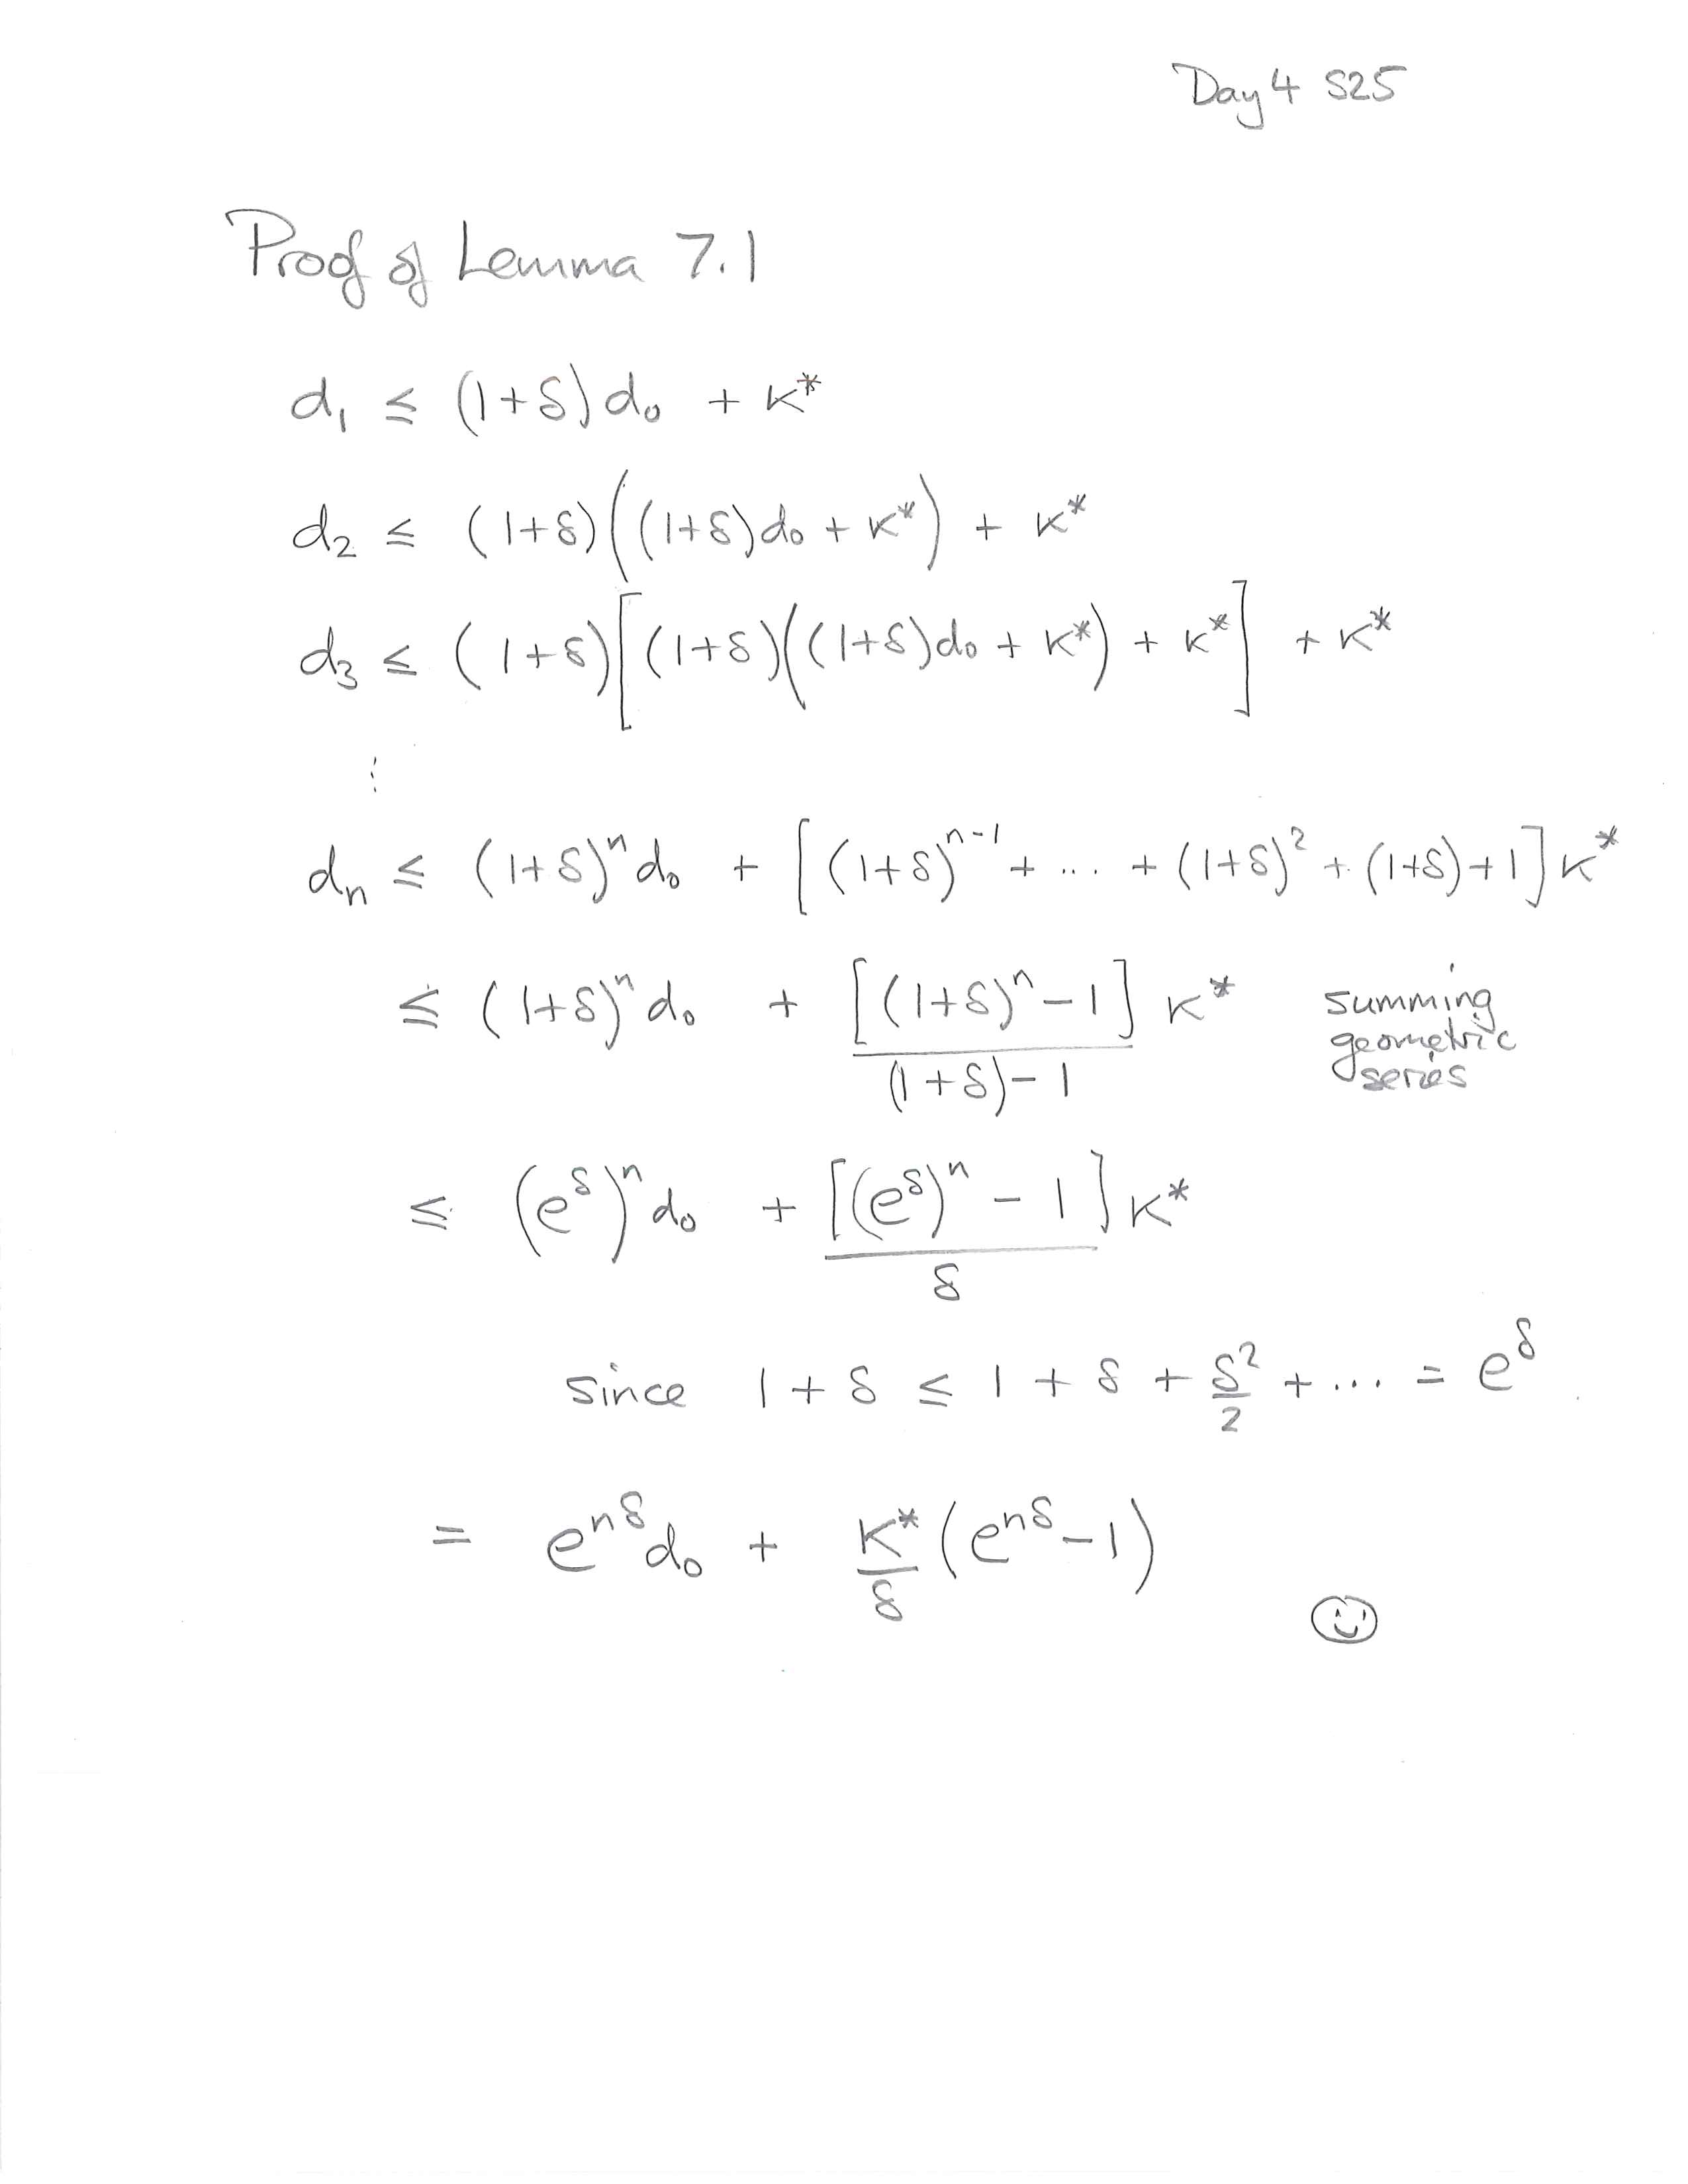 Day 4 S25
Proof of Lemma 7.1
d₁ ≤ (1+δ)d₀ + K*
d₂ ≤ (1+δ)((1+δ)d₀ + K*) + K*
d₃ ≤ (1+δ)[(1+δ)((1+δ)d₀ + K*) + K*] + K*
⋮
dₙ ≤ (1+δ)ⁿd₀ + [(1+δ)ⁿ⁻¹ + ... + (1+δ)² + (1+δ) + 1]K*
≤ (1+δ)ⁿd₀ + [(1+δ)ⁿ − 1]/((1+δ) − 1) K* summing
geometric
series
≤ (e^δ)ⁿd₀ + [(e^δ)ⁿ − 1]/δ K*
since 1 + δ ≤ 1 + δ + δ²/2 + ... = e^δ
= e^{nδ}d₀ + K*/δ (e^{nδ} − 1)
☺